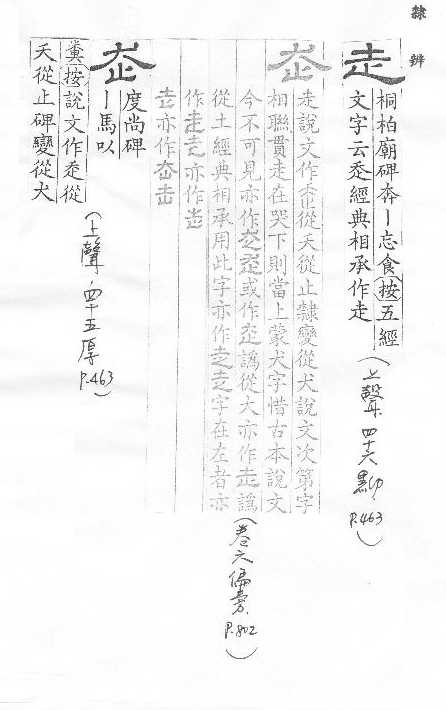 隸辨
走
桐柏廟碑奔丨忘食(按五經
文字云 經典相承作走
(上聲 四十六黝 P.463)
走說文作 從夭從止隸變從犬說文次第字
相聯貫走在哭下則當上蒙犬字惜古本說文
今不可見亦作 或作 譌從大亦作走譌
從土經典相承用此字亦作 字在左者亦
作 亦作
亦作
(卷六偏旁 P.802)
度尚碑
丨馬㕥
糞按說文作 從
夭從止碑變從犬
(上聲.四十五厚 P.463)